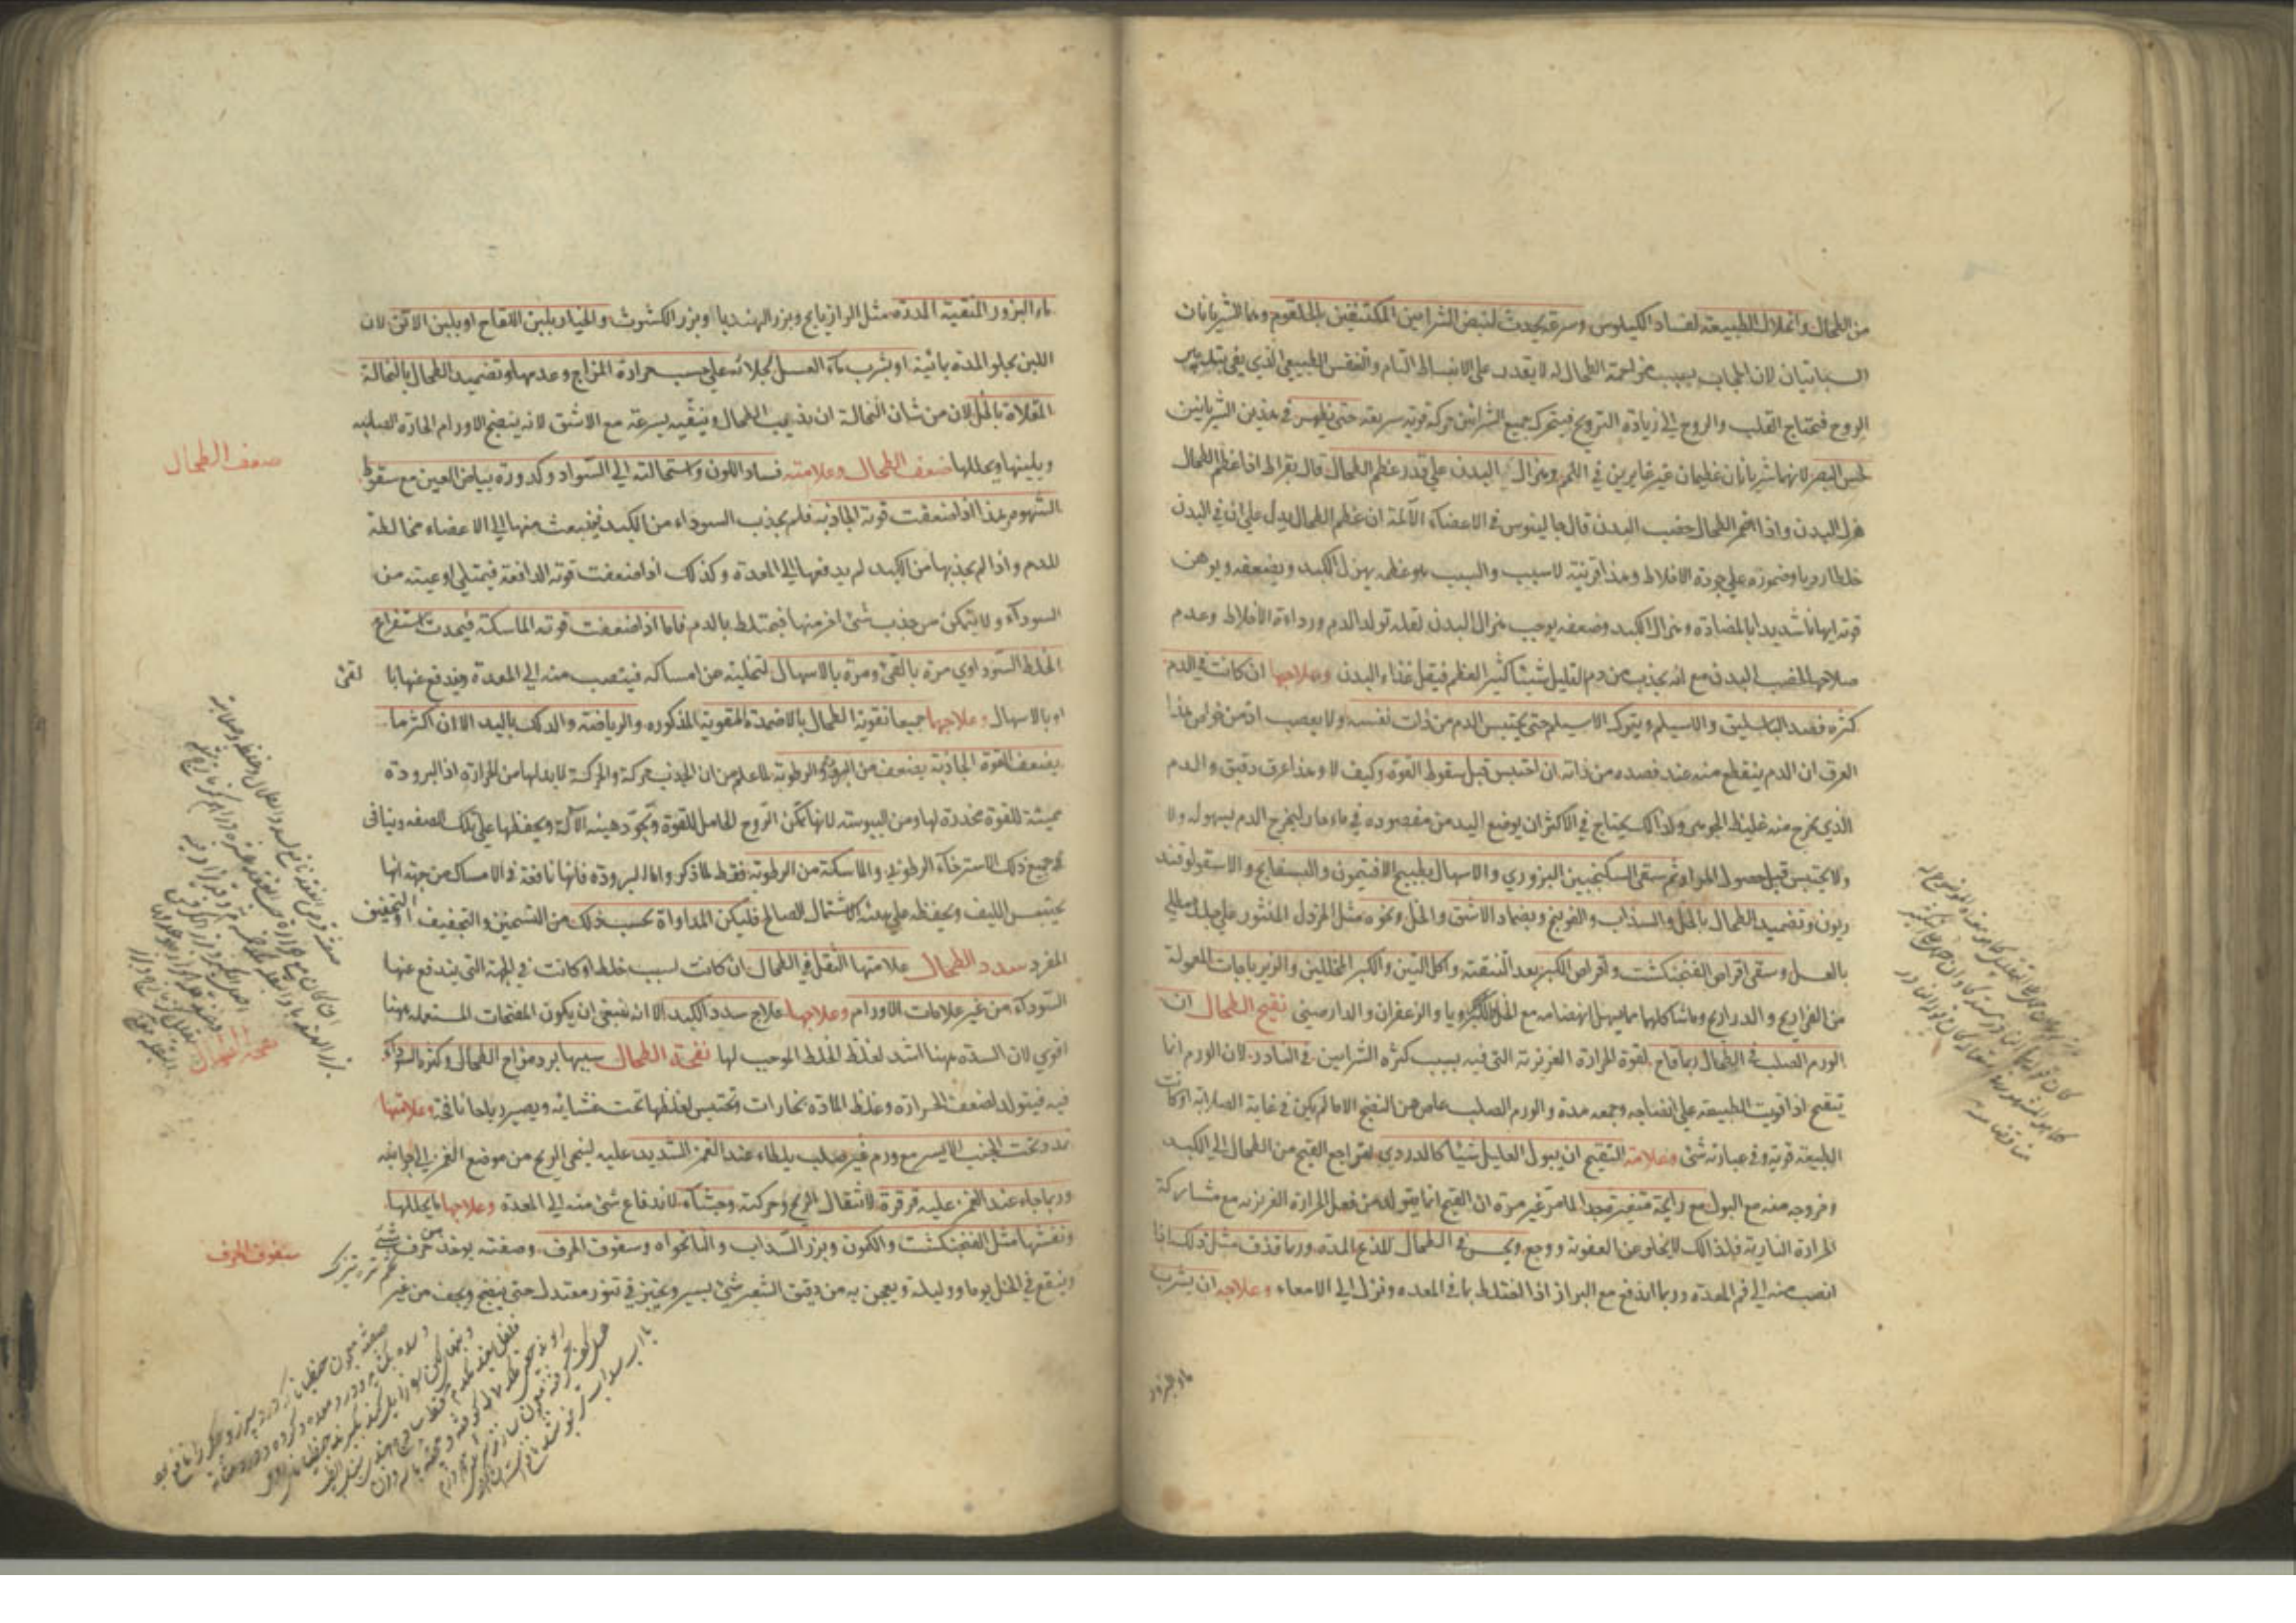 من الطحال وانحلال الطبيعة لفساد الكيلوس وسرعة يحدث لنبض الشرايين المكتنفين بالحلقوم وهما الشريانان
السباتيان لان الحجاب بسبب مزاحمة الطحال له لا يقدر على الانبساط التام والتنفس الطبيعي الذي يفي بتدبير
الروح فيحتاج القلب والروح الى زيادة الترويح فيتحرك جميع الشرائين حركة قوية سريعة حتى يظهر في هذين الشريانين
لحس البصر لانهما شريانان عظيمان غير غايرين في اللحم وهزال البدن على قدر عظم الطحال قال بقراط اذا عظم الطحال
هزل البدن واذا ضمر الطحال خصب البدن قال جالينوس في الاعضاء الآلمة ان عظم الطحال يدل على ان في البدن
خلطا رديا وضموره على جودة الاخلاط وهذا قرينته لا سبب والسبب هو عظمه يهزل الكبد ويضعفه ويوهن
قوته ايهانا شديدا بالمضادة وهزال الكبد وضعفه يوجب هزال البدن لقلة تولد الدم ورداءة الاخلاط وعدم
صلاحها لخصب البدن مع انه يجذب من دم القليل شيئا كثيرا لعظم فيقل غذاء البدن وعلاجها ان كانت في الدم
كثرة فصد الباسليق والاسيلم ويترك الاسيلم حتى يحتبس الدم من ذات نفسه ولا يعصب اذ من خواص هذا
العرق ان الدم ينقطع منه عند فصده من ذاته ان احتبس قبل سقوط القوة وكيف لا وهذا عرق دقيق والدم
الذي يخرج منه غليظ الجوهر ولذلك يحتاج في الاكثر ان يوضع اليد من مفصوده في ماء حار ليخرج الدم بسهولة ولا
ولا يحتبس قبل حصول المراد ثم سقى السكنجبين البزوري والاسهال بطبيخ الافتيمون والبسفايج والاسقولوقند
ريون وتضميد الطحال بالخل والسذاب والفوتنج وبضماد الاشق والخل ونحوه مثل الخردل المنثور على جلد مطلي
بالعسل وسقى اقراص الفنجنكشت واقراص الكبر بعد التنقية واكل التين والكبر المخللين والزيرباجات المعمولة
من الفراريج والدراريج وما شاكلها مما يسهل انهضامه مع الخل والكرويا والزعفران والدارصيني تقيح الطحال ان
الورم الصلب في الطحال ربما قاح لقوة الحرارة الغريزية التي فيه بسبب كثرة الشرايين في النادر لان الورم انما
يتقيح اذا قويت الطبيعة على انضاجه وجمعه مدة والورم الصلب عاص عن النضج الا ما لم يكن في غاية الصلابة او كانت
الطبيعة قوية وفي عبارته شئ وعلامة التقيح ان يبول العليل شيئا كالدردي لتراجع القيح من الطحال الى الكبد
وخروجه منه مع البول مع رائحة متغيرة جدا لما مر غير مرة ان القيح انما يتولد من فعل الحرارة الغريزية مع مشاركة
الحرارة النارية فلذلك لا يخلو عن العفونة ووجع ونخس في الطحال للذع المدة وربما قذف مثل ذلك اذا
انصب منه الى فم المعدة وربما اندفع مع البراز اذا اختلط بما في المعدة ونزل الى الامعاء وعلاجه ان يشرب
ماء البزور
ماء البزور المنقية المدرة مثل الرازيانج وبزر الهندبا وبزر الكشوث والخيار بلبن اللقاح او بلبن الاتن لان
اللبن يجلو المدة بمائيته او يشرب ماء العسل لجلائه على حسب حرارة المزاج وعدمها وتضميد الطحال بالنخالة
المقلاة بالخل لان من شان النخالة ان يذيب الطحال وينقيه بسرعة مع الاشق لانه ينضج الاورام الحارة الصلبة
ويلينها ويحللها ضعف الطحال وعلامته فساد اللون واستحالته الى السواد وكدورة بياض العين مع سقوط
ضعف الطحال
الشهوة هذا اذا ضعفت قوته الجاذبة فلم يجذب السوداء من الكبد فينبعث منها الى الاعضاء مخالطة
للدم واذا لم يجذبها من الكبد لم يدفعها الى المعدة وكذلك اذا ضعفت قوته الدافعة فيمتلى اوعيته من
السوداء ولا يتمكن من جذب شئ اخر منها فيختلط بالدم فاما اذا ضعفت قوته الماسكة فيحدث استفراغ
الخلط السوداوي مرة بالقئ ومرة بالاسهال لتخليته عن امساكه فينصب منه الى المعدة ويندفع عنها با لقئ
او بالاسهال وعلاجها جميعا تقوية الطحال بالاضمدة المقوية المذكورة والرياضة والدلك باليد الا ان اكثر ما
يضعف القوة الجاذبة يضعف من البرودة والرطوبة لما علم من ان الجذب حركة والحركة لا بد لها من الحرارة اذ البرودة
مميتة للقوة مخدرة لها ومن اليبوسة لانها تمكن الروح الحامل للقوة وتجود هيئة الآلة ويحفظها على تلك الصفة وينافى
جميع ذلك الاسترخاء الرطوبي والماسكة من الرطوبة فقط لما ذكر واما البرودة فانها نافعة في الامساك من جهة انها
يحتبس الليف ويحفظه على هيئة الاشتمال الصالح فليكن المداواة بحسب ذلك من التسخين والتجفيف او التجفيف
المفرد سدد الطحال علامتها الثقل في الطحال ان كانت بسبب خلط او كانت في الجهة التي يندفع عنها
السوداء من غير علامات الاورام وعلاجها علاج سدد الكبد الا انه ينبغي ان يكون المفتحات المستعملة ههنا
اقوى لان السدة ههنا اشد لغلظ الخلط الموجب لها نفخة الطحال سببها برد مزاج الطحال وكثرة السوداء
نفخة الطحال
فيه فيتولد لضعف الحرارة وغلظ المادة بخارات وتحتبس لغلظها تحت غشائه ويصير رياحا نافخة وعلامتها
تمدد تحت الجنب الايسر مع ورم غير صلب يلطاء عند الغمز الشديد عليه لتنحي الريح من موضع الغمز الى جانبه
وربما جاء عند الغمز عليه قرقرة لانتقال الريح وحركته وجشاء لاندفاع شئ منه الى المعدة وعلاجها ما يحللها
ونفشها مثل الفنجنكشت والكمون وبزر السذاب والنانخواه وسفوف الحرف وصفته يوخذ من حرف شئ
سفوف الحرف
تخم تره تيزك
وينقع في الخل يوما وليلة ويعجن به من دقيق الشعير شئ يسير ويخبز في تنور معتدل حتى ينضج ويجف من غير